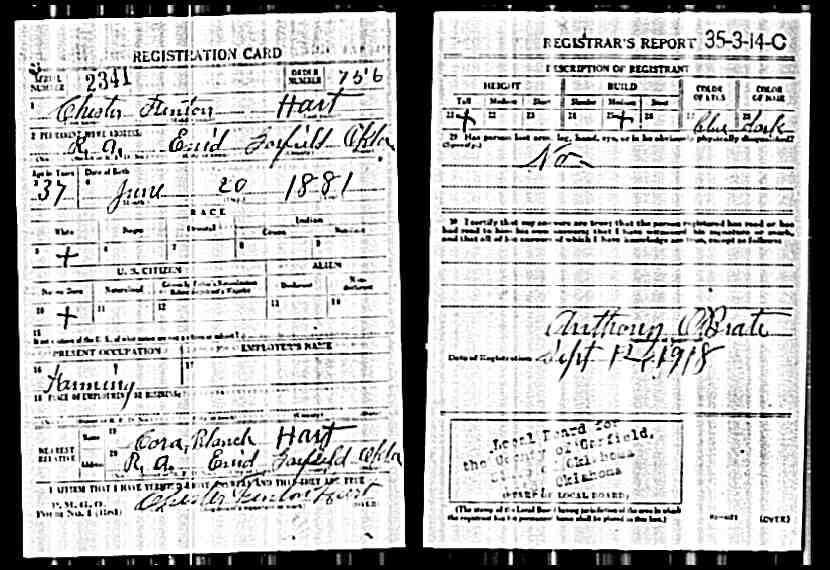 REGISTRATION CARD
SERIAL NUMBER 2341 ORDER NUMBER 756
1 Chester Fenton Hart
2 PERMANENT HOME ADDRESS:
R. A. Enid Garfield Okla
Age in Years Date of Birth
37 June 20 1881
RACE
White Negro Oriental Indian
Citizen
5 + 6 7 8 9
U. S. CITIZEN ALIEN
Native Born Naturalized Declarant
10 + 11 12 13 14
15
PRESENT OCCUPATION EMPLOYER'S NAME
16 Farming 17
18 PLACE OF EMPLOYMENT OR BUSINESS:
NEAREST RELATIVE
Name 19 Cora Blanch Hart
Address 20 R. A. Enid Garfield Okla
I AFFIRM THAT I HAVE VERIFIED ABOVE ANSWERS AND THAT THEY ARE TRUE
P. M. G. O.
Form No. 1 (Red) Chester Fenton Hart
(OVER)
REGISTRAR'S REPORT 35-3-14-C
DESCRIPTION OF REGISTRANT
HEIGHT BUILD COLOR OF EYES COLOR OF HAIR
Tall Medium Short Slender Medium Stout
21 + 22 23 24 25 + 26 27 blue 28 dark
29 Has person lost arm, leg, hand, eye, or is he obviously physically disqualified?
(Specify.)
No
30 I certify that my answers are true; that the person registered has read or has
had read to him his own answers; that I have witnessed his signature or mark,
and that all of his answers of which I have knowledge are true, except as follows:
Anthony
Date of Registration Sept 12 1918
Local Board for
the County of Garfield,
State of Oklahoma
Oklahoma
(STAMP OF LOCAL BOARD)
(The stamp of the Local Board having jurisdiction of the area in which
the registrant has his permanent home shall be placed in this box.)
(OVER)